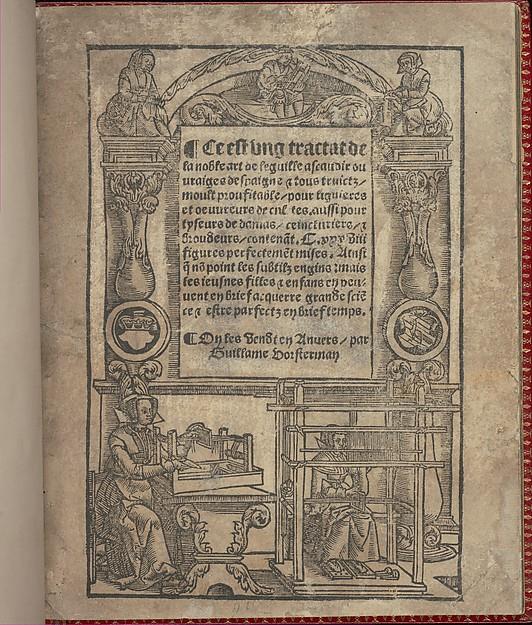 ¶ Ce est ung tractat de
la noble art de leguille ascavoir ou
vraiges de spaigne & tous
moult proufitable / pour
et oeuvreurs de aussi pour
tyseurs de damas / &
brouseurs / contenāt. C.xxxviii
figures perfectemēt mises. Ainsi
q nō point les subtilz engins mais
les ieusnes filles & enfans en peu-
uent en brief acquerre grande sciē
ce & estre parfectz en brief temps.
¶ On les Vendt en Anvers / par
Guillame Vorsterman